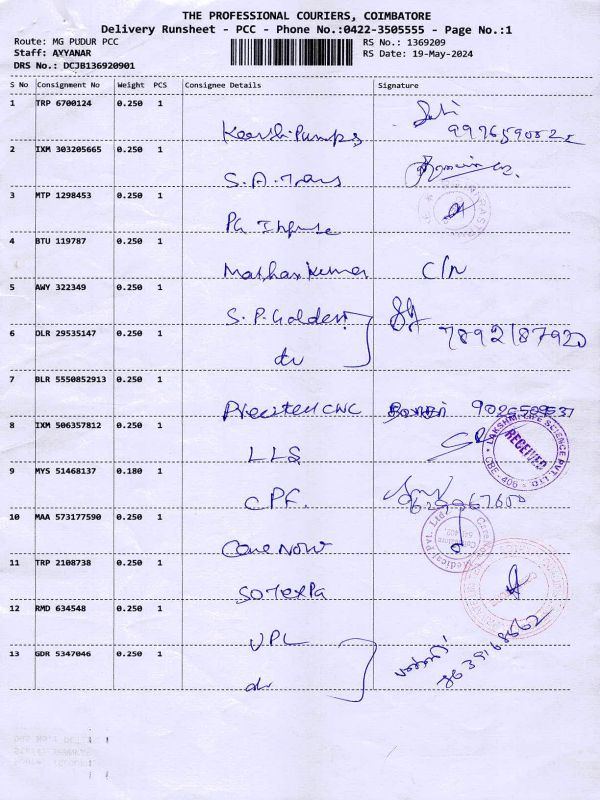 THE PROFESSIONAL COURIERS, COIMBATORE
Delivery Runsheet - PCC - Phone No.:0422-3505555 - Page No.:1
Route: MG PUDUR PCC
Staff: AYYANAR
DRS No.: DCJB136920901
RS No.: 1369209
RS Date: 19-May-2024
S No Consignment No Weight PCS Consignee Details Signature
1 TRP 6700124 0.250 1
2 IXM 303205665 0.250 1
S.A. Trans
3 MTP 1298453 0.250 1
4 BTU 119787 0.250 1
Mathan Kumar C/N
5 AWY 322349 0.250 1
S.P. Golden
7892187920
6 DLR 29535147 0.250 1
do
7 BLR 5550852913 0.250 1
CNC
8 IXM 506357812 0.250 1
LLS
LAKSHMI LIFE SCIENCE PVT. LTD.
RECEIVED
CBE - 406
9 MYS 51468137 0.180 1
CPF.
10 MAA 573177590 0.250 1
Care Now
Medical Pvt. Ltd
11 TRP 2108738 0.250 1
12 RMD 634548 0.250 1
UPL
13 GDR 5347046 0.250 1
do